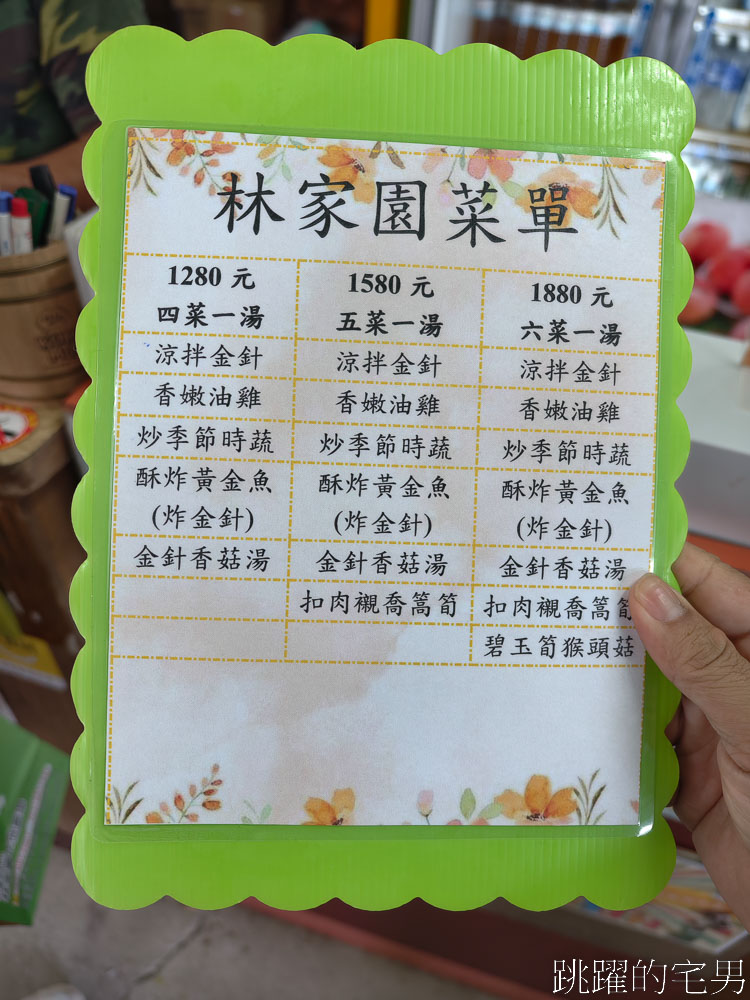 林家園菜單
1280 元 1580 元 1880 元
四菜一湯 五菜一湯 六菜一湯
涼拌金針 涼拌金針 涼拌金針
香嫩油雞 香嫩油雞 香嫩油雞
炒季節時蔬 炒季節時蔬 炒季節時蔬
酥炸黃金魚 酥炸黃金魚 酥炸黃金魚
(炸金針) (炸金針) (炸金針)
金針香菇湯 金針香菇湯 金針香菇湯
扣肉襯喬篙筍 扣肉襯喬篙筍
碧玉筍猴頭菇
跳躍的宅男